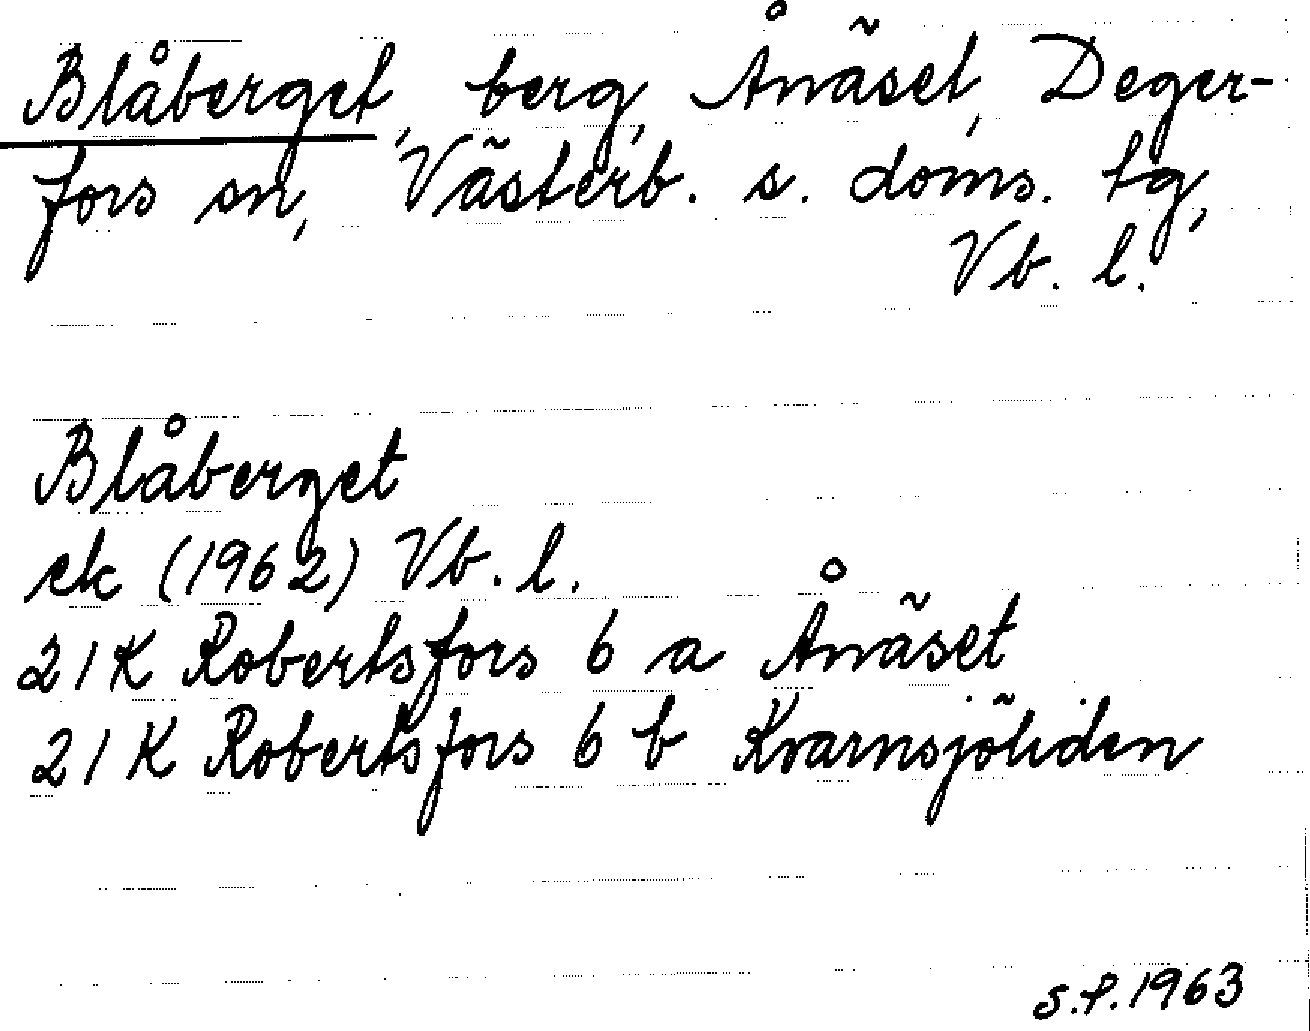 Blåberget, berg, Ånäset, Deger-
fors sn, Västerb. s. doms. tg,
Vb. l.
Blåberget
ek (1962) Vb. l.
21K Robertsfors 6 a Ånäset
21K Robertsfors 6 b Kvarnsjöliden
S.P. 1963